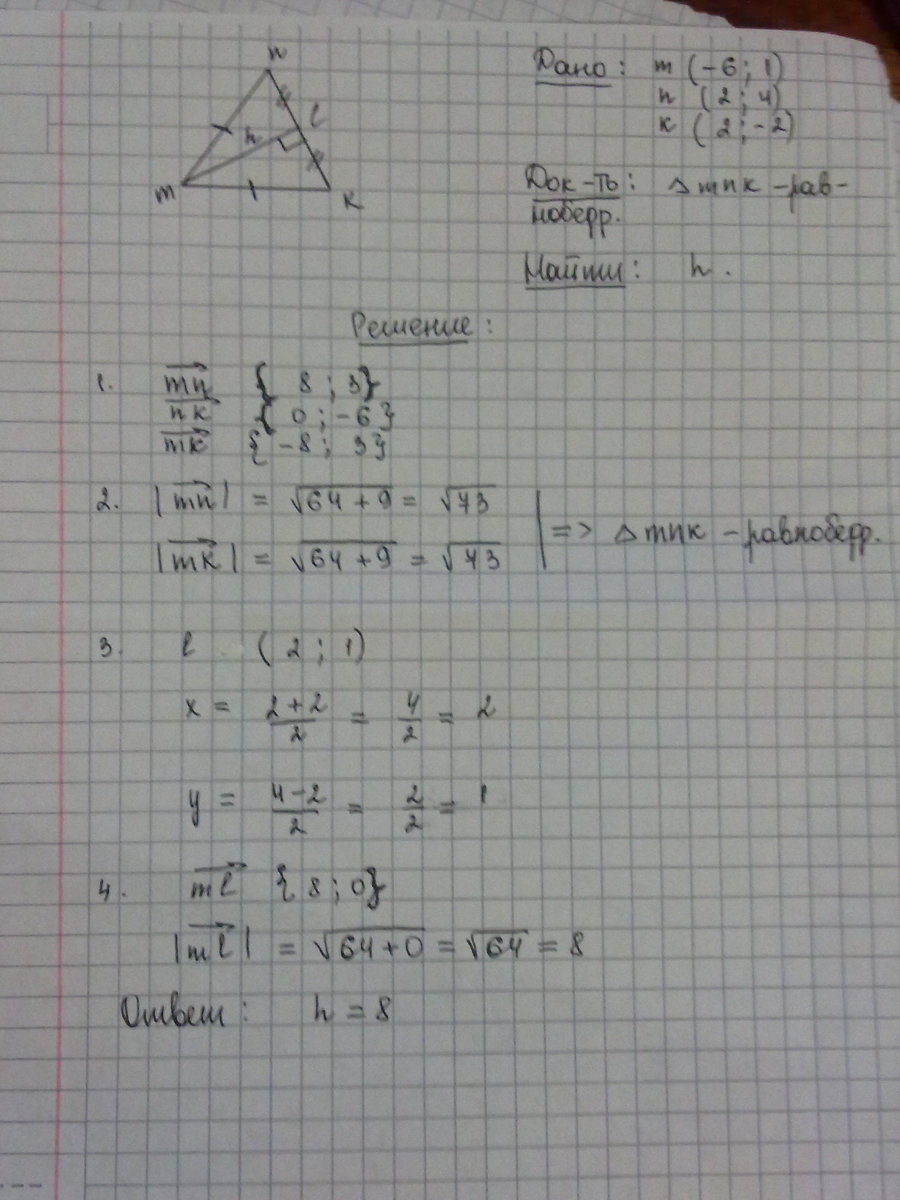 n
l
h
m
к
Дано: m (-6; 1)
n (2; 4)
к (2; -2)
Док-ть: △mnк -рав-
нобедр.
Найти: h.
Решение:
1. mn {8; 3}
nк {0; -6}
mк {-8; 3}
2. |mn| = √64+9 = √73
|mк| = √64+9 = √73 => △mnк -равнобедр.
3. l (2; 1)
x = 2+2/2 = 4/2 = 2
y = 4-2/2 = 2/2 = 1
4. ml {8; 0}
|ml| = √64+0 = √64 = 8
Ответ: h = 8